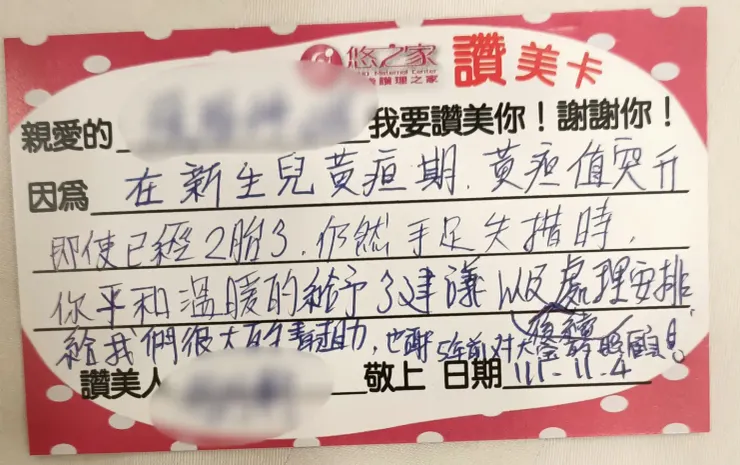 悠之家 讚美卡
Maternal Center
護理之家
親愛的 我要讚美你！謝謝你！
因為 在新生兒黃疸期，黃疸值突升
即使已經2胎了，仍然手足失措時，
你平和溫暖的給予了建議以及處理安排
後續
給我們很大的幫助，也謝5年前對大寶的照顧！
讚美人 敬上 日期 111-11-4